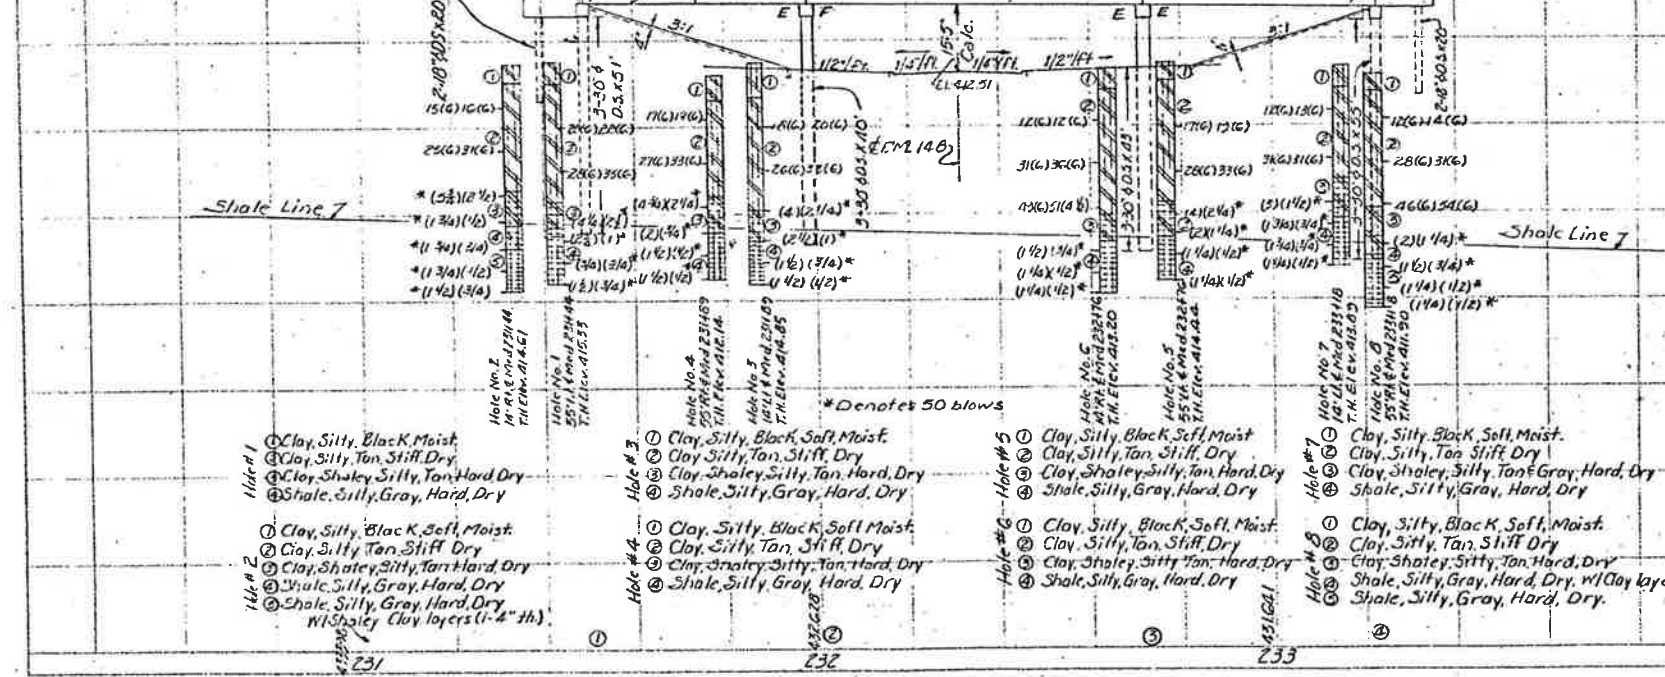 2-18" ØD.S.x20'
3:1
E F
15.5' Calc.
E E
3:1
2-18" ØD.S.x20'
1/2"/Ft.
1/4"/Ft.
1/4"/Ft.
1/2"/Ft
El. 412.51
3-30" Ø D.S. x 51'
3-30" ØD.S. x 40'
3-30" ØD.S. x 43'
3-30" ØD.S. x 55'
℄ FM 148
15(6)16(6)
25(6)31(6)
17(6)19(6)
27(6)33(6)
12(6)12(6)
31(6)36(6)
28(6)35(6)
28(6)33(6)
12(6)13(6)
31(6)31(6)
12(6)14(6)
28(6)31(6)
46(6)54(6)
Shale Line 7
*(1 3/4)(1/2)
*(1 3/4)(3/4)
*(1 3/4)(1/2)
*(1 1/2)(3/4)
(4)(2 1/4)*
(2 1/2)(1)*
(1 1/2)(3/4)*
(1 1/2)(1/2)*
(1 1/2)(3/4)*
(1 1/4)(1/2)*
(1 1/4)(1/2)*
(4)(2 1/4)*
(2)(1 1/4)*
(1 1/4)(1/2)*
(1 1/4)(1/2)*
(2)(1 1/4)*
(1 1/2)(3/4)*
(1 1/4)(1/2)*
(1 1/4)(1/2)*
Shale Line 7
Hole No. 2
14' Rt. ℄ Med 231+44
T.H. Elev. 414.61
Hole No. 1
55' Lt. ℄ Med 231+44
T.H. Elev. 415.33
Hole No. 4
55' Rt ℄ Med 231+89
T.H. Elev. 412.14
Hole No. 3
14' Lt ℄ Med. 231+89
T.H. Elev. 414.85
Hole No. 6
14' Rt. ℄ Med 232+76
T.H. Elev. 413.20
Hole No. 5
55' Lt ℄ Med 232+76
T.H. Elev. 414.44
Hole No 7
14' Lt ℄ Med 233+18
T.H. Elev. 413.89
Hole No. 8
T.H. Elev. 411.90
*Denotes 50 blows
Hole # 1
① Clay, Silty, Black, Moist.
② Clay, Silty, Tan, Stiff, Dry
③ Clay, Shaley Silty, Tan Hard, Dry
④ Shale, Silty, Gray, Hard, Dry
Hole # 2
① Clay, Silty, Black, Soft, Moist.
② Clay, Silty Tan, Stiff Dry
③ Clay, Shaley, Silty, Tan Hard, Dry
④ Shale, Silty, Gray, Hard, Dry
⑤ Shale, Silty, Gray, Hard, Dry
W/Shaley Clay layers (1-4" th.)
Hole # 3
① Clay, Silty, Black, Soft, Moist.
② Clay Silty, Tan, Stiff, Dry
③ Clay, Shaley Silty, Tan, Hard, Dry
④ Shale, Silty, Gray, Hard, Dry
Hole # 4
① Clay, Silty, Black, Soft Moist.
② Clay, Silty, Tan, Stiff, Dry
③ Clay, Shaley Silty, Tan, Hard, Dry
④ Shale, Silty, Gray, Hard, Dry
Hole # 5
① Clay, Silty, Black Soft, Moist
② Clay, Silty, Tan, Stiff, Dry
③ Clay, Shaley Silty, Tan, Hard, Dry
④ Shale, Silty, Gray, Hard, Dry
Hole # 6
① Clay, Silty, Black, Soft, Moist.
② Clay, Silty, Tan, Stiff, Dry
③ Clay, Shaley Silty Tan, Hard, Dry
④ Shale, Silty, Gray, Hard, Dry
Hole # 7
① Clay, Silty, Black, Soft, Moist.
② Clay, Silty, Tan Stiff Dry
③ Clay, Shaley, Silty, Tan & Gray, Hard, Dry
④ Shale, Silty, Gray, Hard, Dry
Hole # 8
① Clay, Silty, Black, Soft, Moist.
② Clay, Silty, Tan, Stiff Dry
③ Clay Shaley, Silty, Tan, Hard, Dry
④ Shale, Silty, Gray, Hard, Dry, W/Clay laye
⑤ Shale, Silty, Gray, Hard, Dry.
432.628
431.641
① ② ③ ④
231 232 233